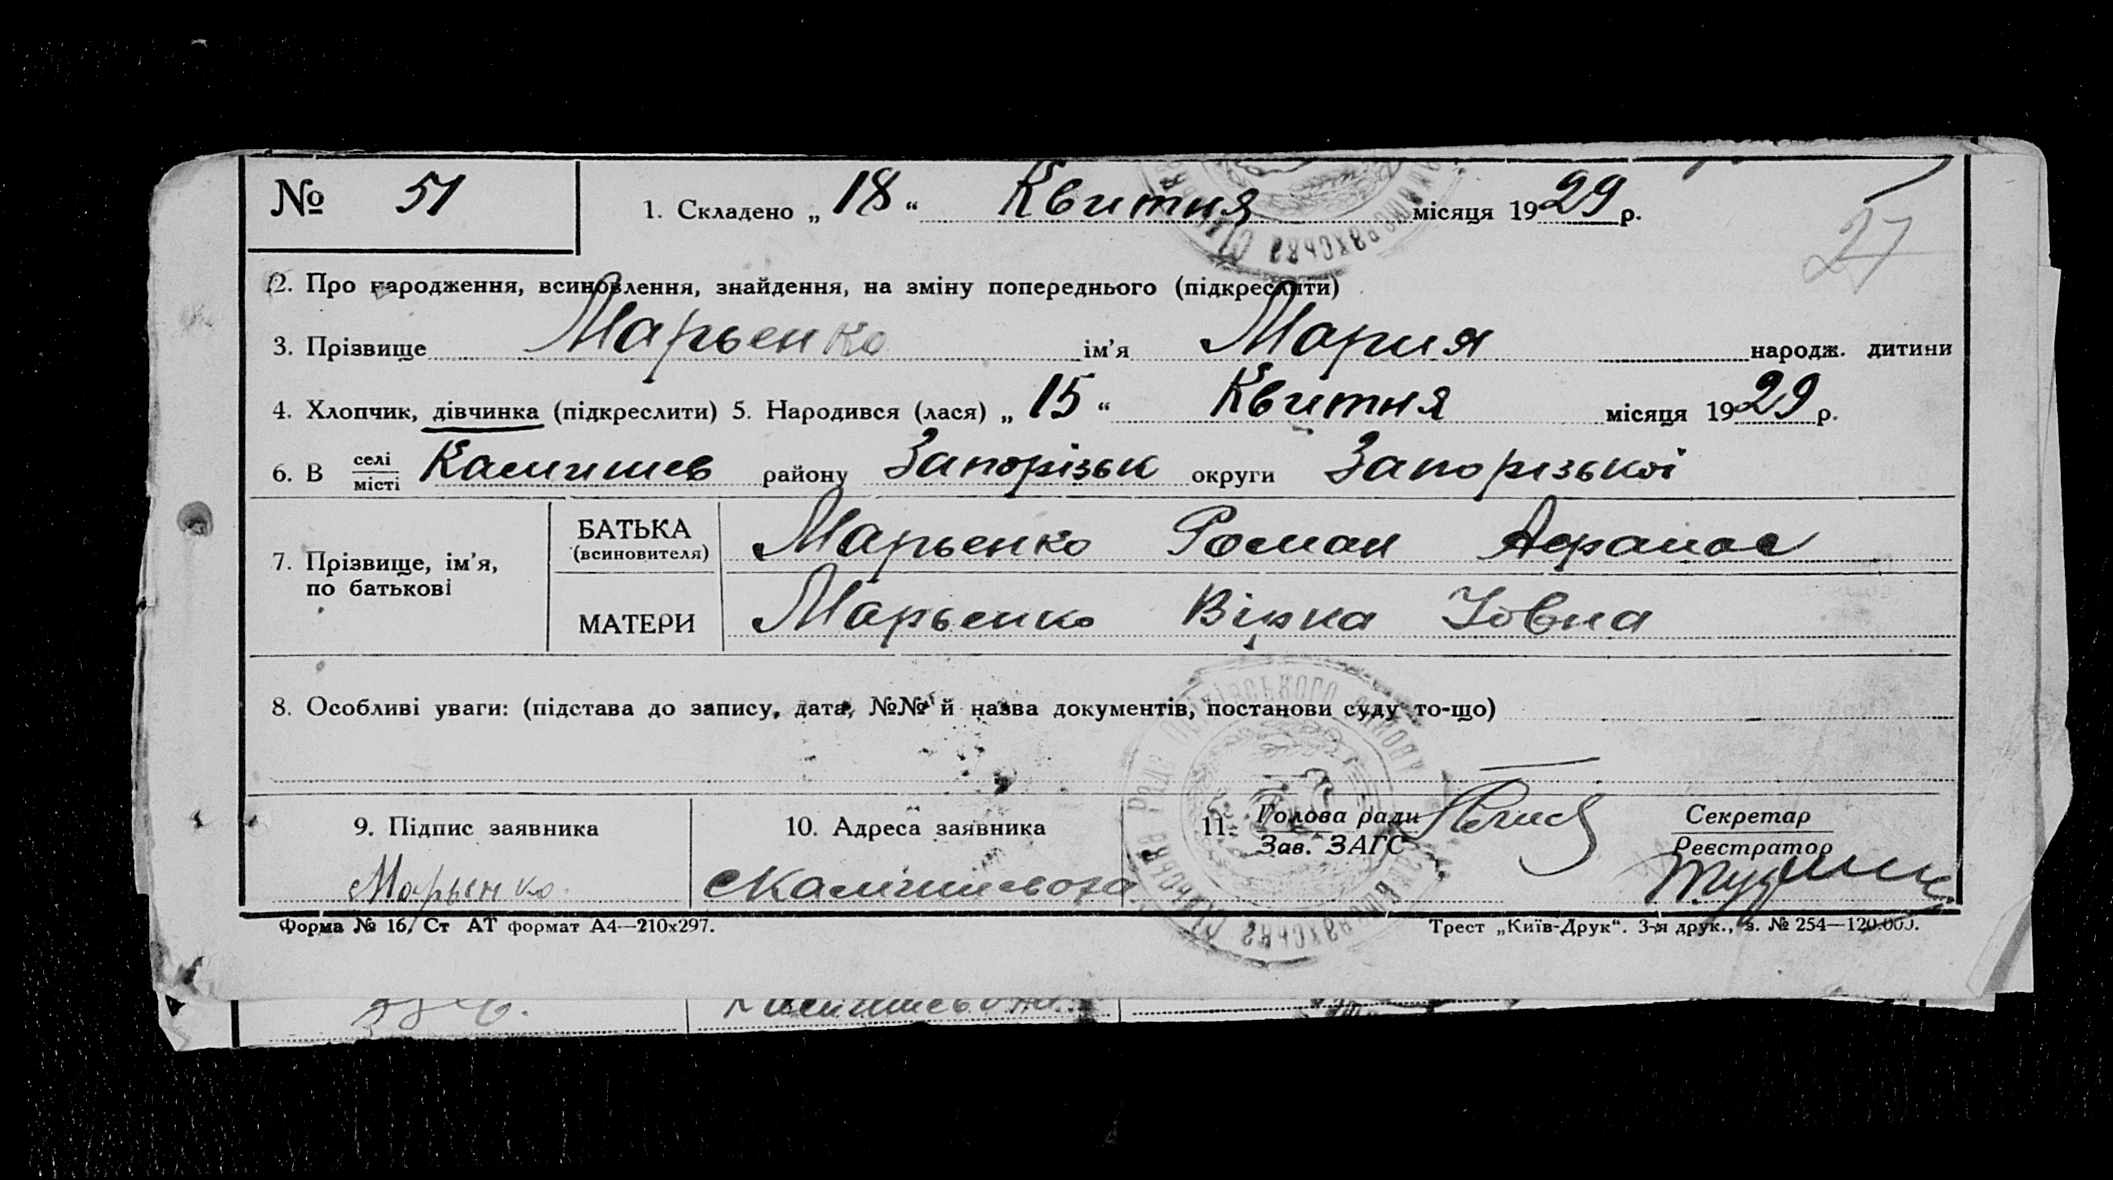 № 51 1. Складено „ 18 “ Квитня місяця 1929 р.
27
2. Про народження, всиновлення, знайдення, на зміну попереднього (підкреслити)
3. Прізвище Марьенко ім’я Мария народж. дитини
4. Хлопчик, дівчинка (підкреслити) 5. Народився (лася) „ 15 “ Квитня місяця 1929 р.
6. В селі місті Камишев району Запорізьк округи Запорізької
7. Прізвище, ім’я, по батькові
БАТЬКА (всиновителя) Марьенко Роман Афанас
МАТЕРИ Марьенко Вірка Іовна
8. Особливі уваги: (підстава до запису, дата, №№ й назва документів, постанови суду то-що)
9. Підпис заявника 10. Адреса заявника 11. Голова ради Секретар
Зав. ЗАГС Реєстратор
Марьенко
Форма № 16/ Ст АТ формат А4—210х297. Трест „Київ-Друк“. 3-я друк., з. № 254—120.000.